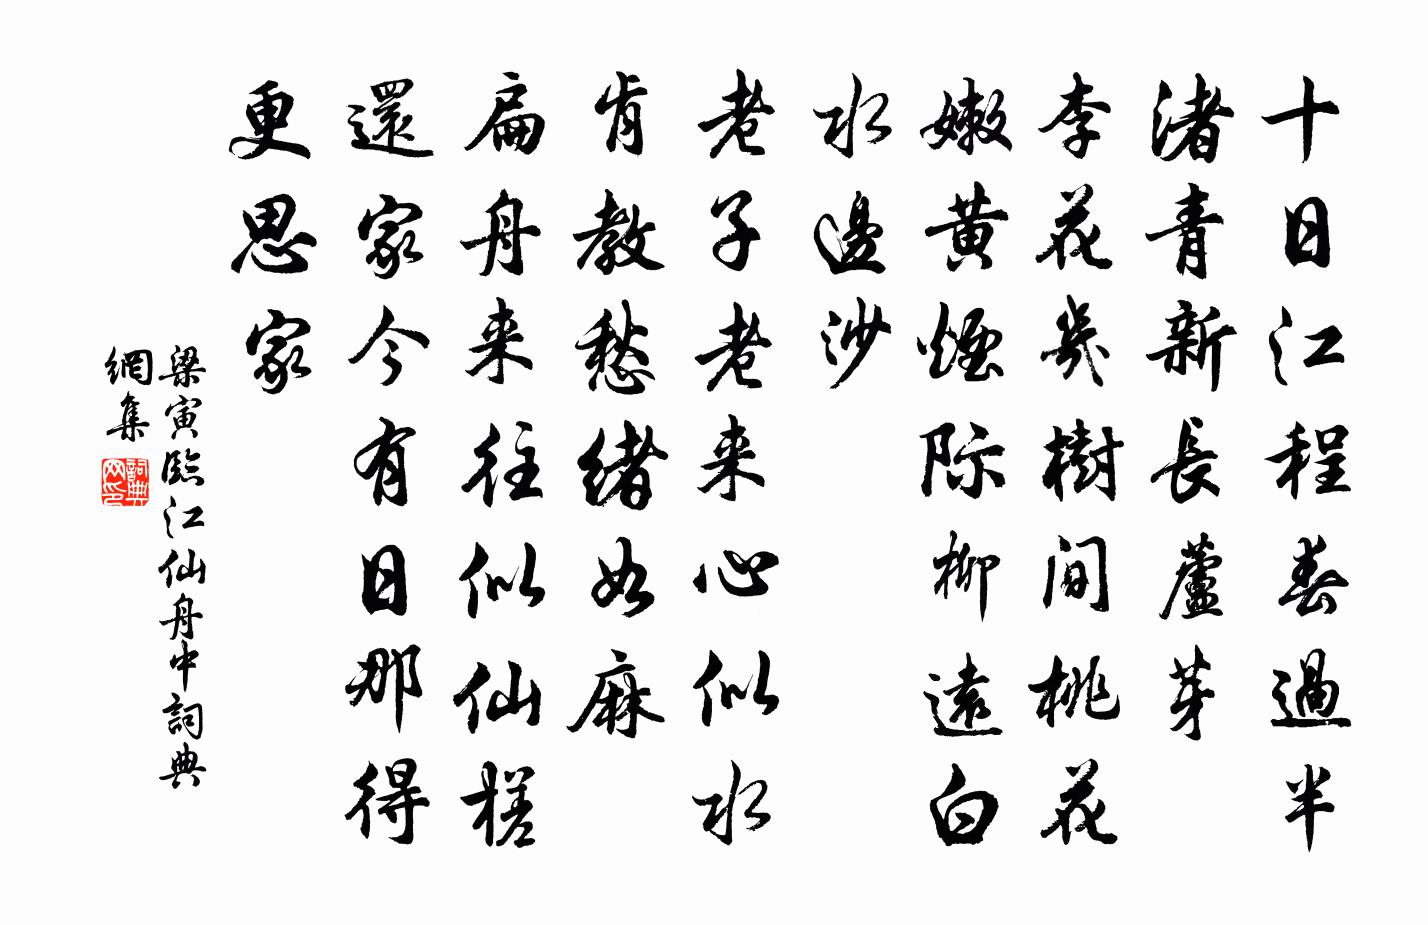 十日江程春過半
渚青新長蘆芽
李花幾樹間桃花
嫩黄煙際柳遠白
水邊沙
老子老来心似水
肯教愁緒如麻
扁舟来往似仙槎
還家今有日那得
更思家
梁寅臨江仙舟中詞典
網集
詞典
网印